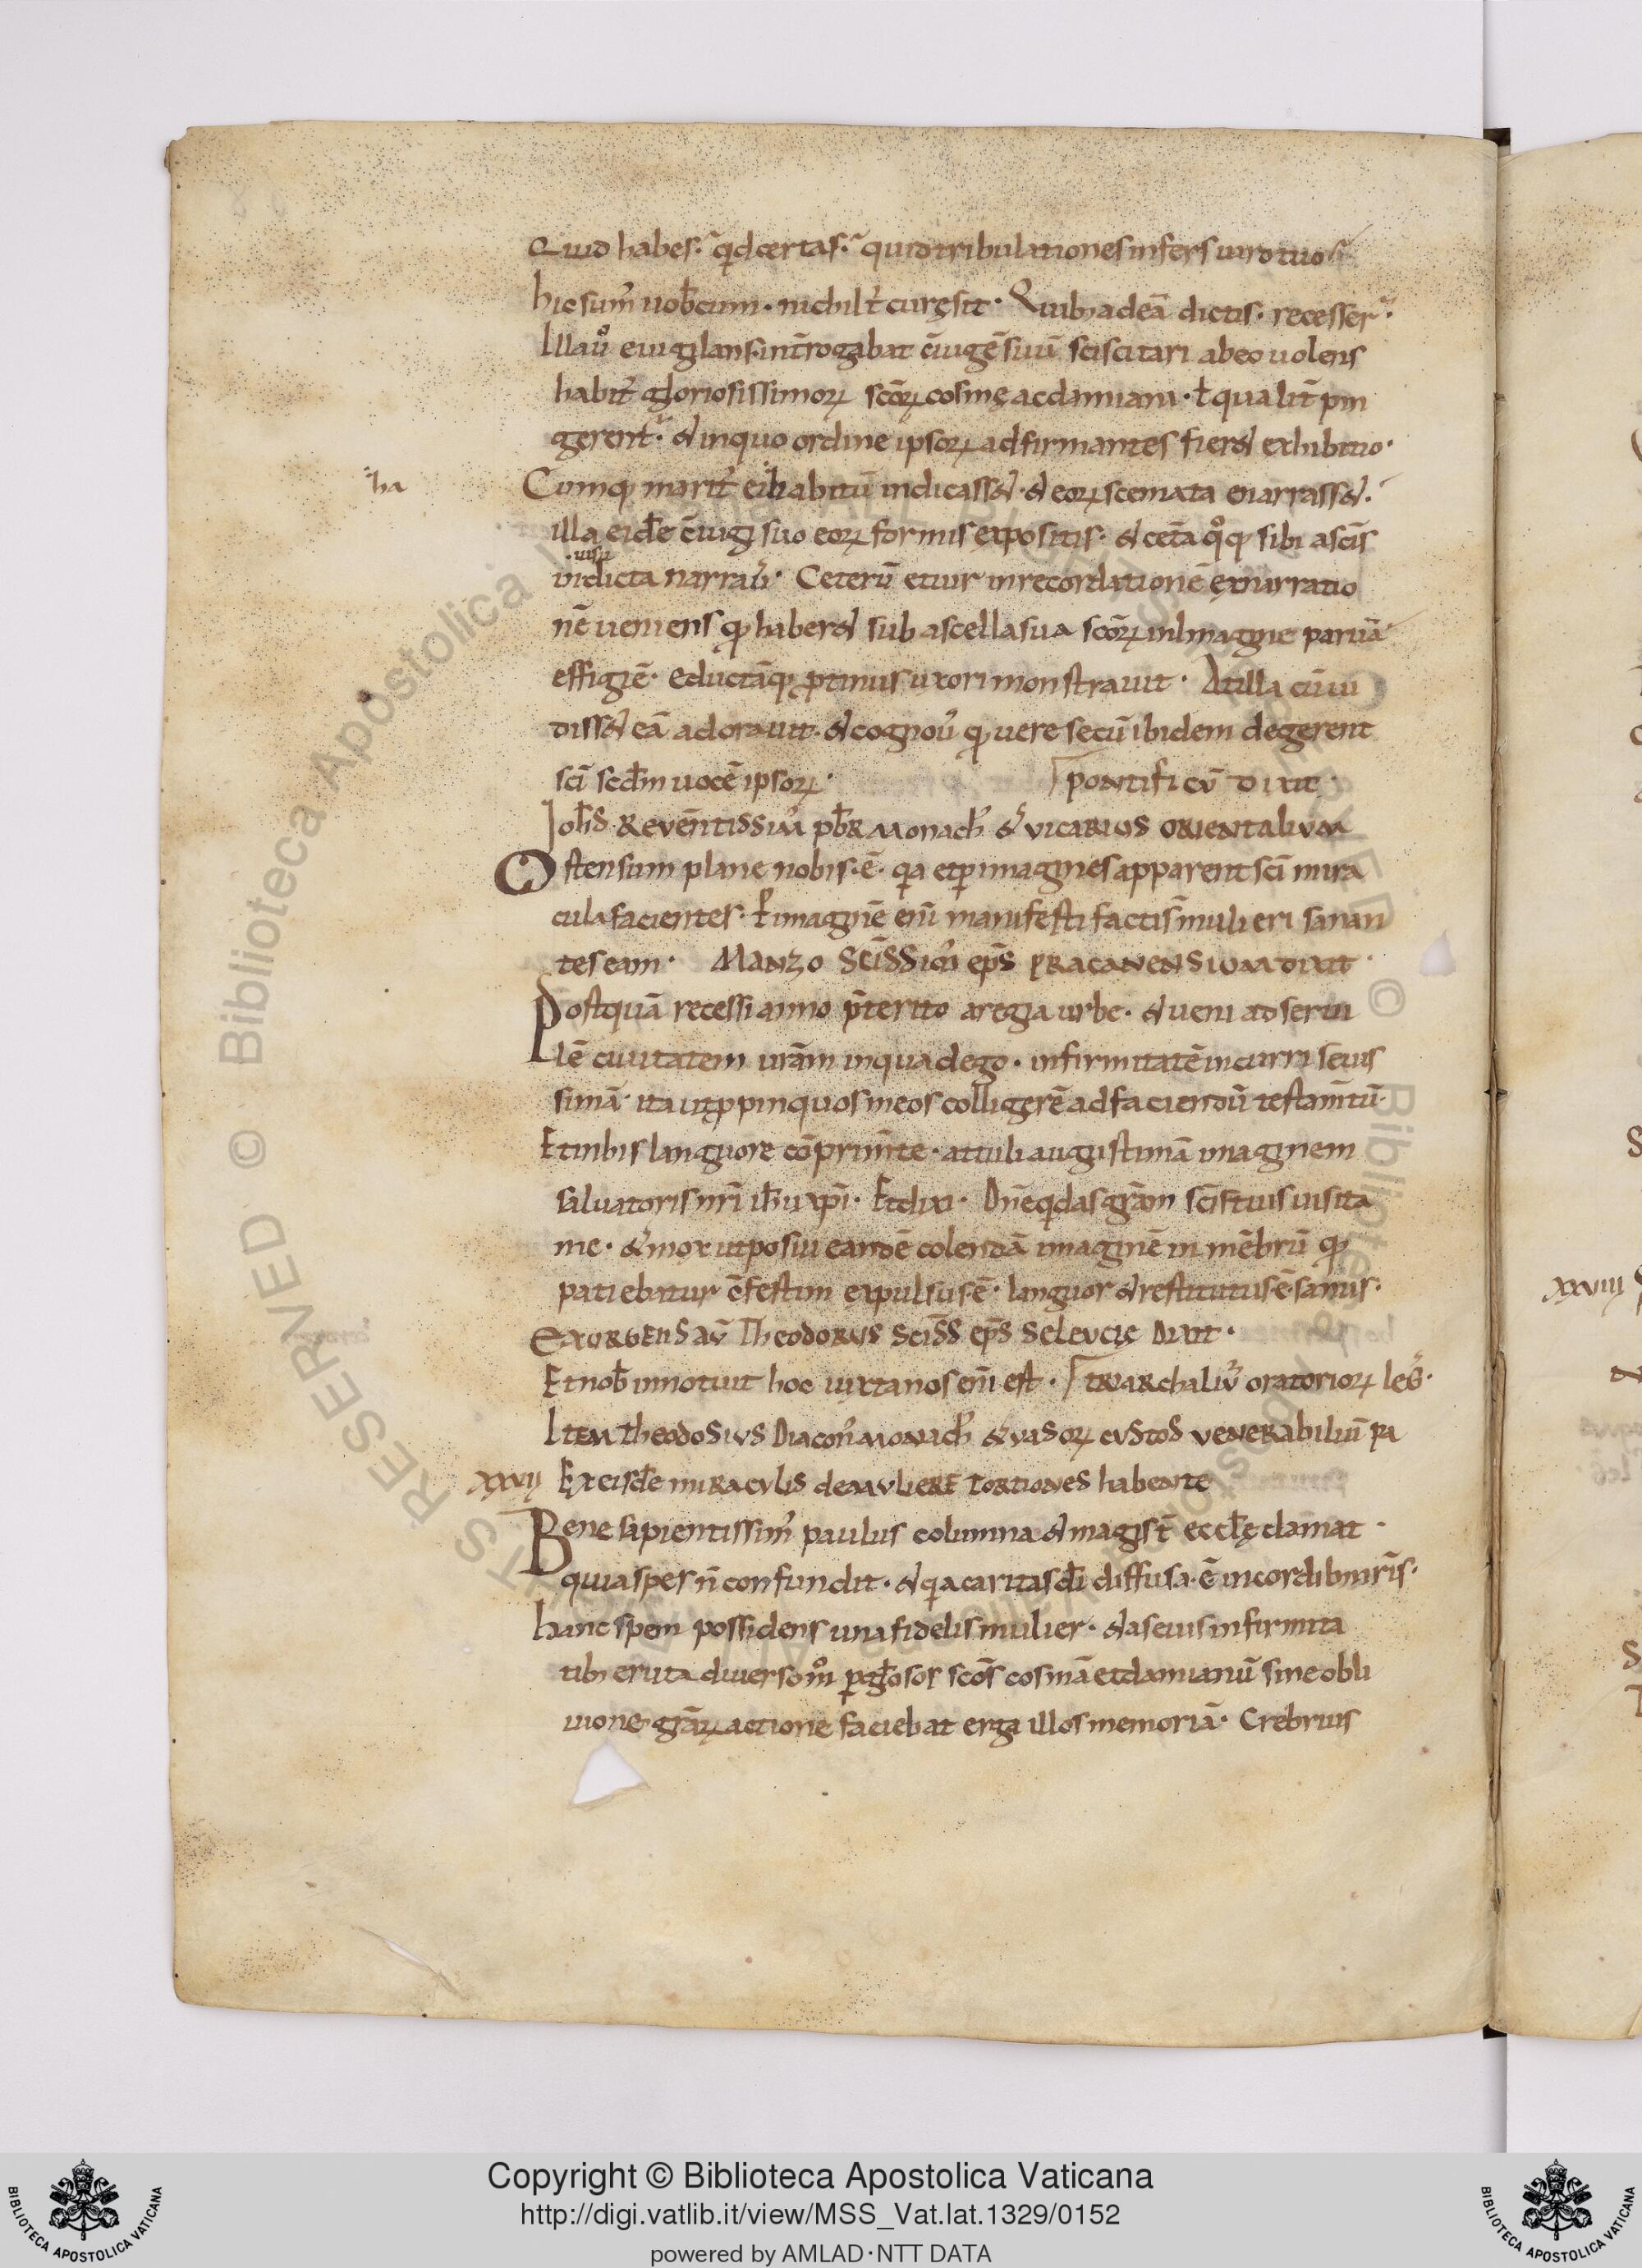 Quid habes· qd certas· quid tribulationes infers uiro tuo
hic sum̄ uob̄cum· nichil t̄ curę sit· Quib; ad eā dictis· recesser̄·
Illa ū euigilans· int̄rogabat c̄iugē suū sciscitari ab eo uolens
habit̄ gloriosissimoꝝ sc̄oꝝ cosmę ac damiani· ł qualit̄ pin
gerent̄· & in quo ordine ipsoꝝ ad firmantes fier& exhibitio·
ha
Cumq; marit̄ ei habitū indicass&· & eoꝝ scemata enarrass&·
illa eidē c̄iugi suo eoꝝ formis expositis· & cet̄a q̊q; sibi a sc̄is
·uisu
indicta narrau̅· Ceterū et uir in recordationē ex narratio
nē ueniens q haber& sub ascella sua sc̄oꝝ in imagine paruā
effigiē· eductāq; ꝓtinus uxori monstrauit· At illa cū ui
diss& eā adorauit· & cognou̅ q uere secū ibidem degerent
sc̄i scd̄m uocē ipsoꝝ· pontificū dixit·
Ioh̄s Reuēntissim̄ pb̄r monach̄ & uicarius orientalium
Ostensum plane nobis·ē· qa et ꝑ imagines apparent sc̄i mira
cula facientes· ꝑ imaginē eni̅ manifesti facti s̄ mulieri sanan
tes eam· Manzo Sc̄issim̄ ep̄s pracanensium dixit·
Postquā recessi anno p̄terito a regia urbe· & ueni ad serui
lē ciuitatem ur̄am in qua dego· infirmitatē incurri seuis
simā· ita ut ꝓpinquos meos colligerē ad faciendū testam̄tū·
Et in his languore cōprim̄te· attuli augustinā imaginem
saluatoris nr̄i ih̄u xp̄i· Et dixi· Dn̄e q das gr̄am sc̄is tuis uisita
me· & mox ut posui eandē colendā imaginē in mēbrū q
patiebatur c̄festim expulsus·ē· languor & restitutus·ē· sanus·
Exurgens aū Theodorus Sc̄iss ep̄s Seleucię Dixit·
Et nob̄ innotuit hoc iuxta nos eni̅ est· triarchaliū oratorioꝝ leg̅·
Item Theodosius Diacon̄ monach̄ & uasoꝝ custos venerabiliū pa
XXVII Ex eisdē miraculis de muliere tortiones habente
Bene sapientissim̄ paulus columna & magist̄ eccl̄ę clamat·
quia spes n̄ confundit· & qa caritas dī diffusa·ē in cordib; nr̄is·
hanc spem possidens una fidelis mulier· & a seuis infirmita
tib; eruta diuerso m̊ ꝑ gl̄osos sc̄os cosmā et damianū sine obli
uione gr̄aꝝ actione faciebat erga illos memoriā· Crebrius
XXVIII
Copyright © Biblioteca Apostolica Vaticana
http://digi.vatlib.it/view/MSS_Vat.lat.1329/0152
powered by AMLAD·NTT DATA